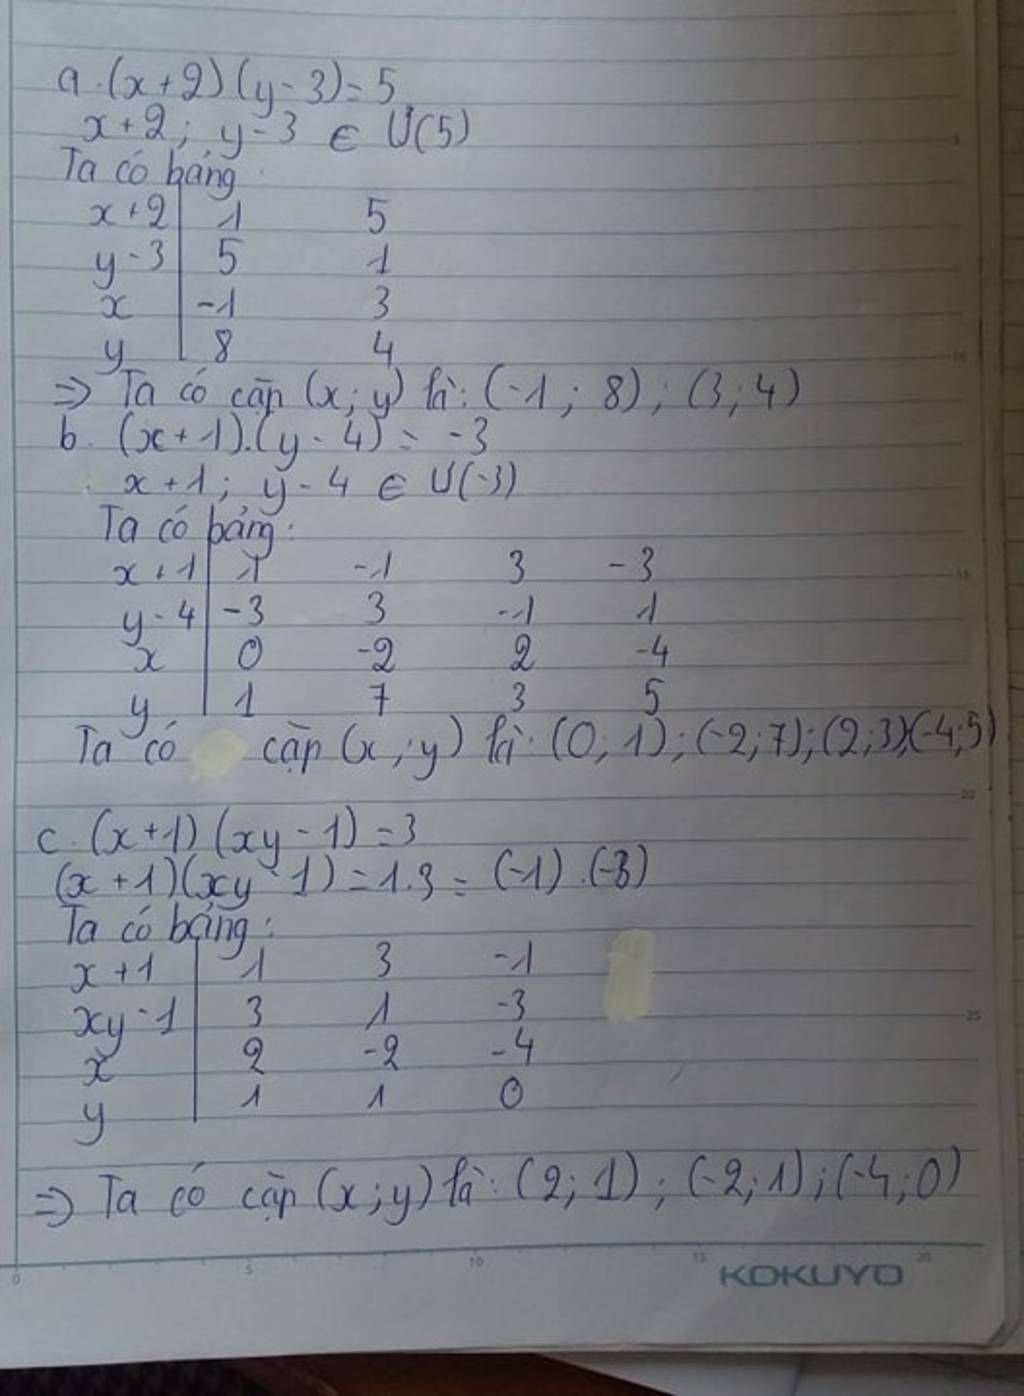 a. (x+2)(y-3)=5
x+2; y-3 ∈ Ư(5)
Ta có bảng
x+2 1 5
y-3 5 1
x -1 3
y 8 4
=> Ta có cặp (x; y) là: (-1; 8); (3; 4)
b. (x+1).(y-4) = -3
x+1; y-4 ∈ Ư(-3)
Ta có bảng:
x+1 1 -1 3 -3
y-4 -3 3 -1 1
x 0 -2 2 -4
y 1 7 3 5
Ta có cặp (x; y) là: (0; 1); (-2; 7); (2; 3)(-4; 5)
c. (x+1)(xy-1)=3
(x+1)(xy-1)=1.3=(-1).(-3)
Ta có bảng:
x+1 1 3 -1
xy-1 3 1 -3
x 2 -2 -4
y 1 1 0
=> Ta có cặp (x; y) là: (2; 1); (-2; 1); (-4; 0)
0 5 10 15 20
KOKUYO